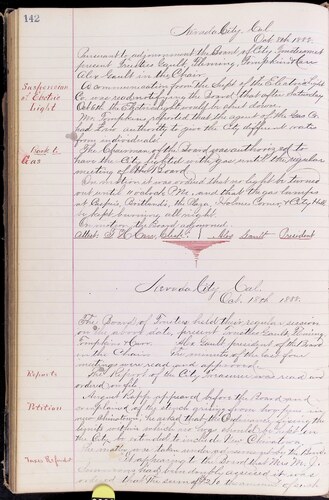 142
Nevada City, Cal.
Oct. 8th 1888.
Pursuant to adjournment the Board of City Trustees met
present Trustees Gault, Fleming, Tompkins & Carr
Alex Gault in the Chair.
Suspension of Electric Light
A communication from the Supt of the Electric Light
Co. was read notifying the Board that after Saturday
Oct 6th the Electric light would be shut down.
Mr. Tompkins reported that the agent of the Gas Co.
had no authority to give the City different rates
from individuals.
Gas
The Chairman of the Board was authorized to
have the City lighted with gas until the regular
meeting of the Board.
On motion it was ordered that no light be turned
out until 12 o'clock M., and that the gas lamps
at
Corner & City Hall
be kept burning all night.
On motion the Board adjourned.
Attest T. H. Carr, Clerk. Alex Gault President
Nevada City, Cal.
Oct. 18th 1888.
The Board of Trustees held their regular session
on the above date, present Trustees Gault, Fleming
Tompkins & Carr. Alex Gault president of the Board
in the Chair. The minutes of the last four
meetings were read and approved.
Reports
The Report of the City Treasurer was read and
ordered on file.
Petition
August appeared before the Board and
complained of the stench arising from
in
Chinatown, he asked that the
limits within which
the City be extended to include New Chinatown
taken under advisement by the Board.
Taxes Refunded
It appearing to the Board that Mrs. M. J.
had been doubly assessed it was
ordered that the sum of $2.70 the amount of such